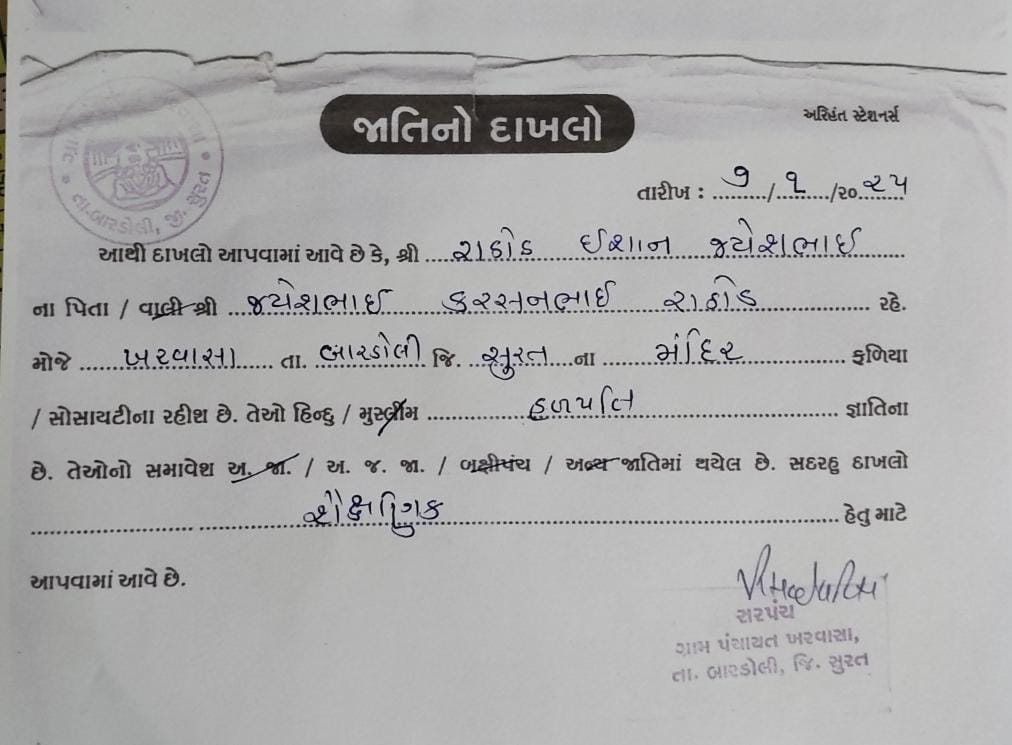 જાતિનો દાખલો
અરિહંત સ્ટેશનર્સ
તા. બારડોલી, જી. સુરત
તારીખ : ૭/૧/૨૦૨૫
આથી દાખલો આપવામાં આવે છે કે, શ્રી રાઠોડ ઈશાન જયેશભાઈ
ના પિતા / વાલી શ્રી જયેશભાઈ કરસનભાઈ રાઠોડ રહે.
મોજે ખરવાસા તા. બારડોલી જિ. સુરત ના મંદિર ફળિયા
/ સોસાયટીના રહીશ છે. તેઓ હિન્દુ / મુસ્લીમ હળપતિ જ્ઞાતિના
છે. તેઓનો સમાવેશ અ. જા. / અ. જ. જા. / બક્ષીપંચ / અન્ય જાતિમાં થયેલ છે. સદરહુ દાખલો
શૈક્ષણિક હેતુ માટે
આપવામાં આવે છે.
સરપંચ
ગ્રામ પંચાયત ખરવાસા,
તા. બારડોલી, જિ. સુરત